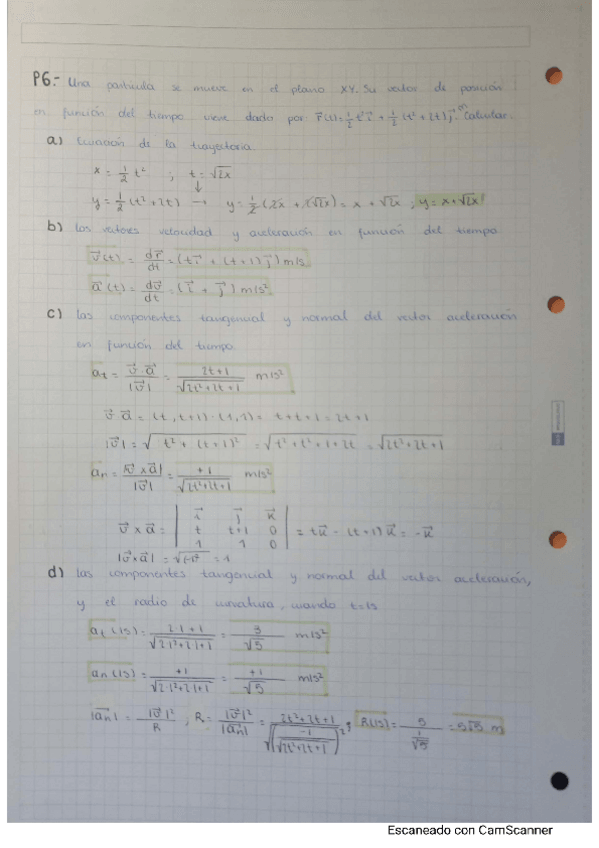 P6.- Una partícula se mueve en el plano XY. Su vector de posición
en función del tiempo viene dado por r⃗(t)=½t²i⃗+½(t²+2t)j⃗(m). Calcular.
a) Ecuación de la trayectoria
x = ½t² ; t = √2x
↓
y = ½(t²+2t) → y = ½(2x + 2√2x) = x + √2x ; y = x+√2x!
b) Los vectores velocidad y aceleración en función del tiempo
v⃗(t) = dr⃗/dt = (t i⃗ + (t+1) j⃗) m/s
a⃗(t) = dv⃗/dt = (i⃗ + j⃗) m/s²
c) Las componentes tangencial y normal del vector aceleración
en función del tiempo.
at = v⃗·a⃗/|v⃗| = 2t+1/√2t²+2t+1 m/s²
v⃗ a⃗ = (t, t+1)·(1,1) = t+t+1 = 2t+1
|v⃗| = √t² + (t+1)² = √t²+t²+1+2t = √2t²+2t+1
an = |v⃗×a⃗|/|v⃗| = +1/√2t²+2t+1 m/s²
i⃗ j⃗ k⃗
v⃗ × a⃗ = | t t+1 0 | = tk⃗ - (t+1)k⃗ = -k⃗
1 1 0
|v⃗×a⃗| = √(-1)² = 1
d) Las componentes tangencial y normal del vector aceleración,
y el radio de curvatura, cuando t=1s
at(1s) = 2·1+1/√2·1²+2·1+1 = 3/√5 m/s²
an(1s) = +1/√2·1²+2·1+1 = +1/√5 m/s²
|a⃗n| = |v⃗|²/R ; R = |v⃗|²/|a⃗n| = 2t²+2t+1/√(-1/√2t²+2t+1)² ; R(1s) = 5/(1/√5) = 5√5 m
Escaneado con CamScanner